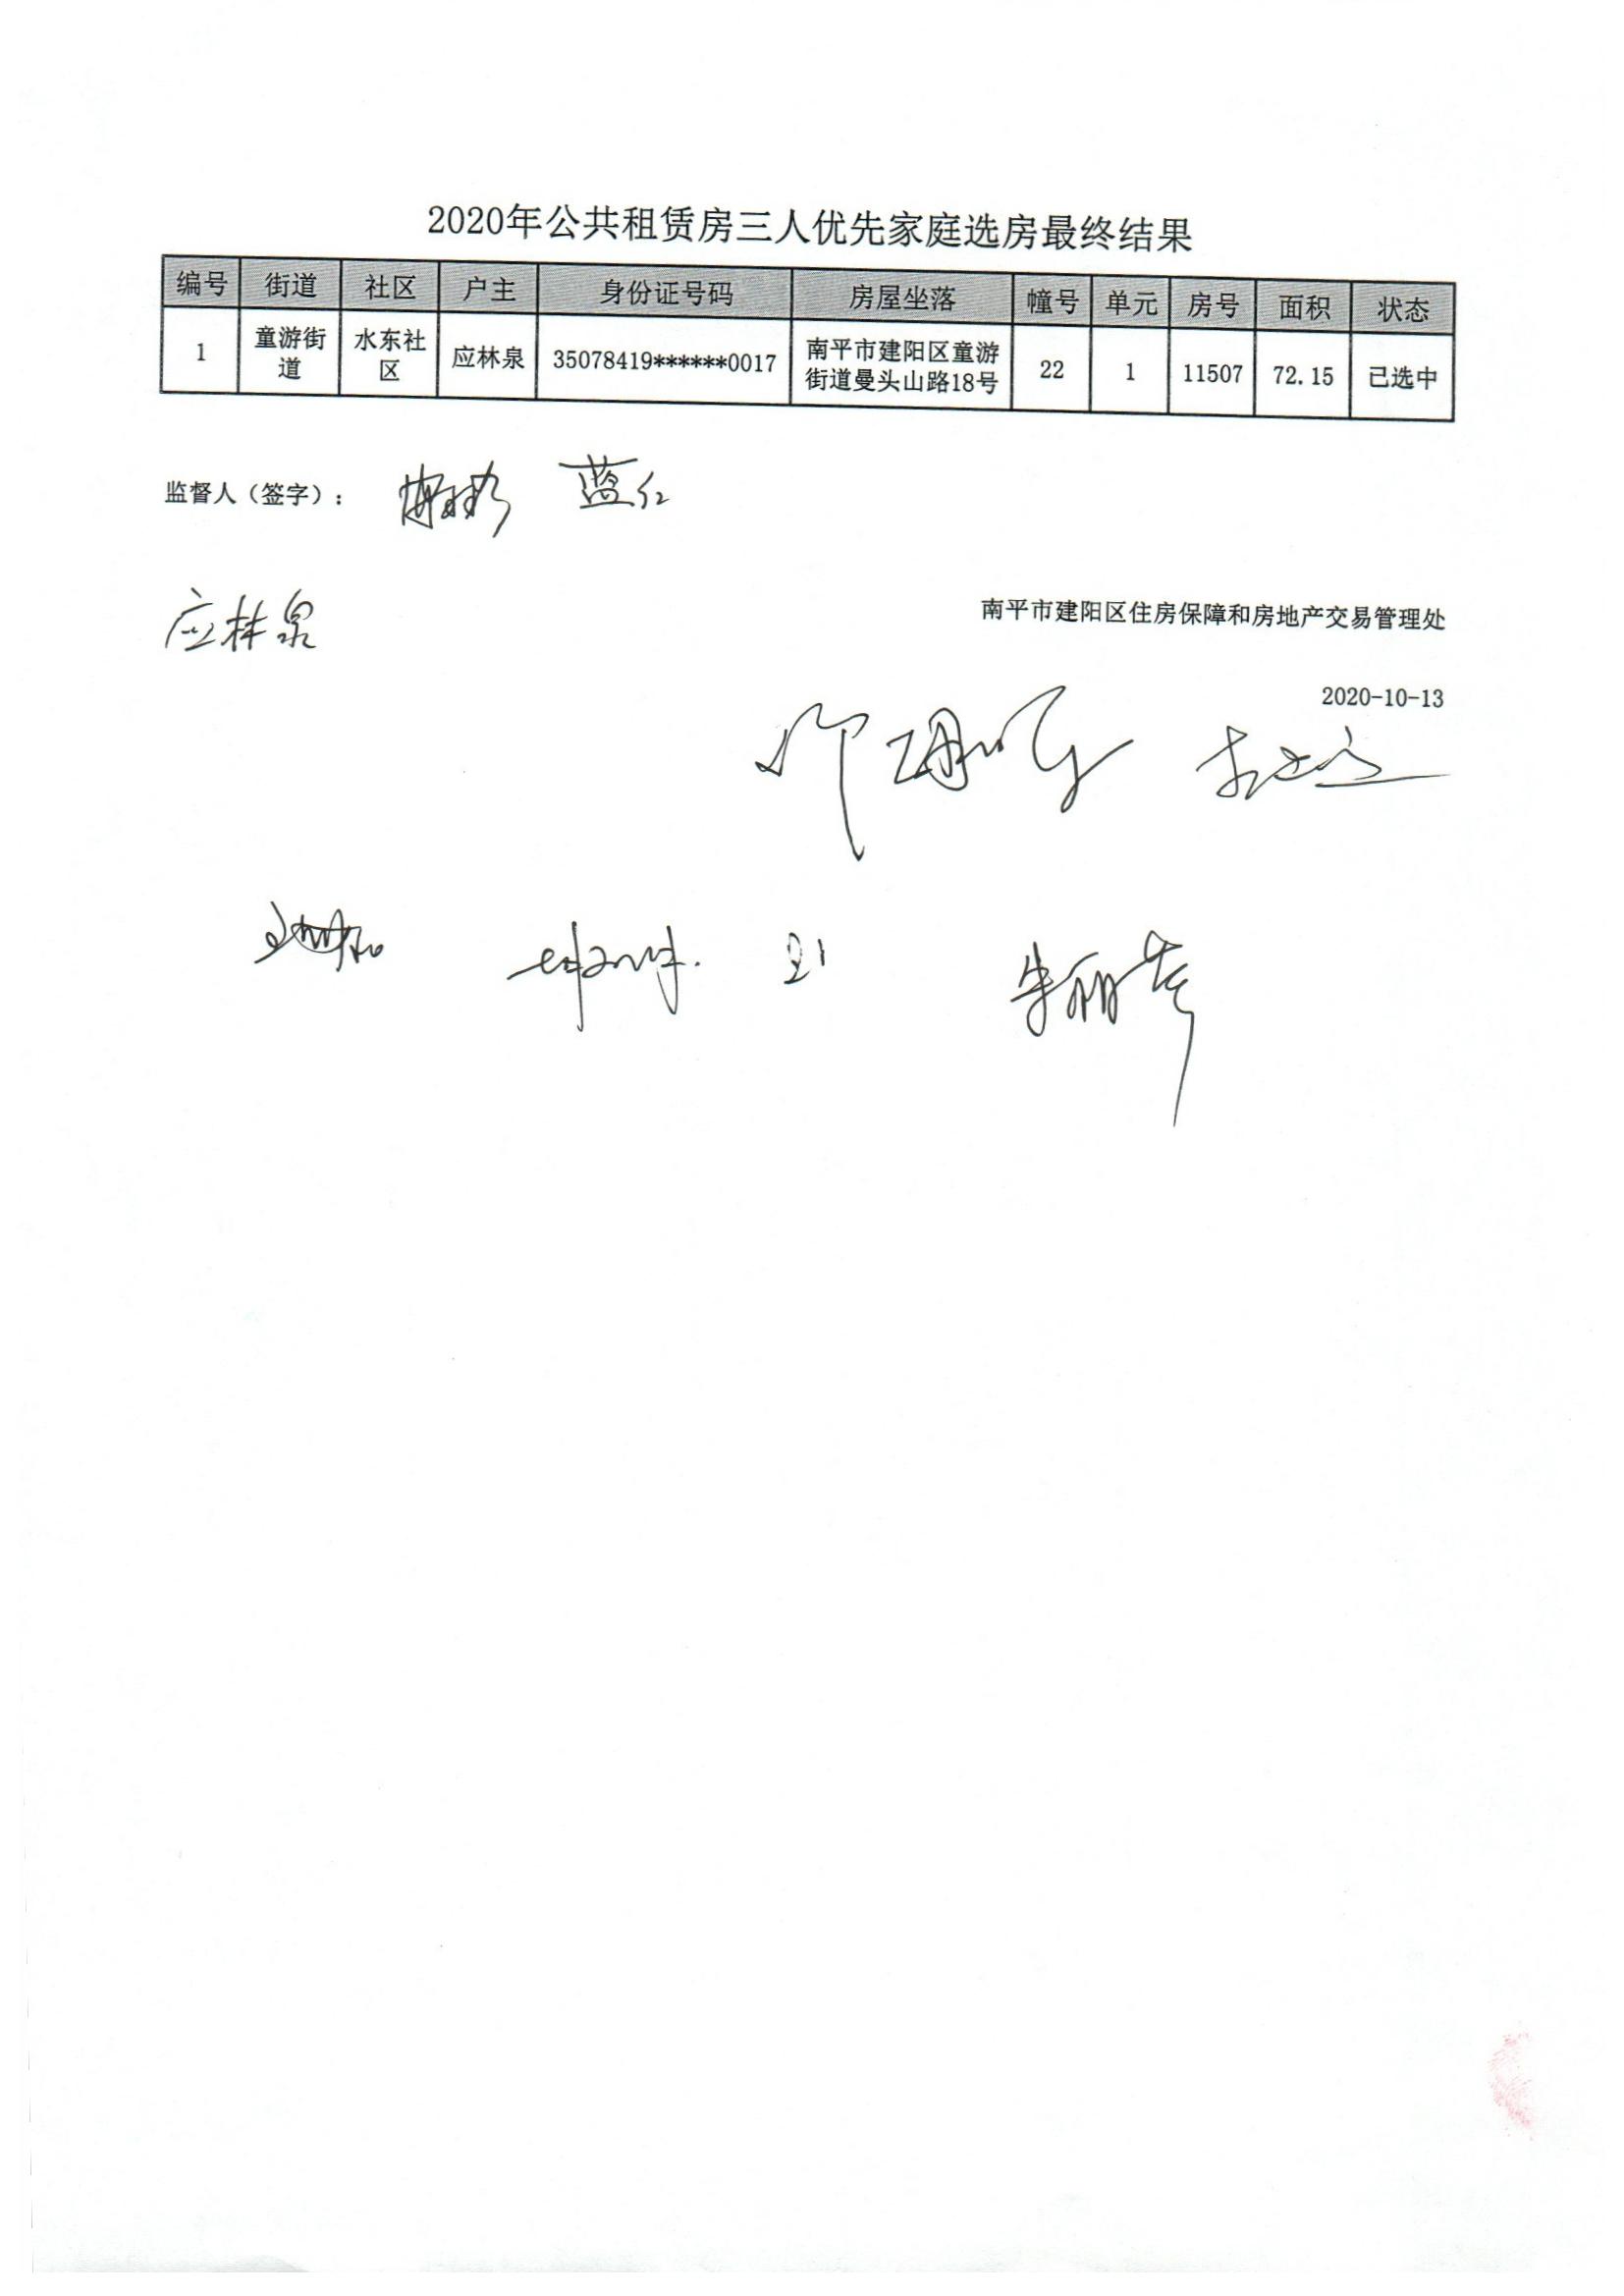 2020年公共租赁房三人优先家庭选房最终结果
编号 街道 社区 户主 身份证号码 房屋坐落 幢号 单元 房号 面积 状态
1 童游街道 水东社区 应林泉 35078419******0017 南平市建阳区童游街道曼头山路18号 22 1 11507 72.15 已选中
监督人（签字）： 蓝红
应林泉
南平市建阳区住房保障和房地产交易管理处
2020-10-13